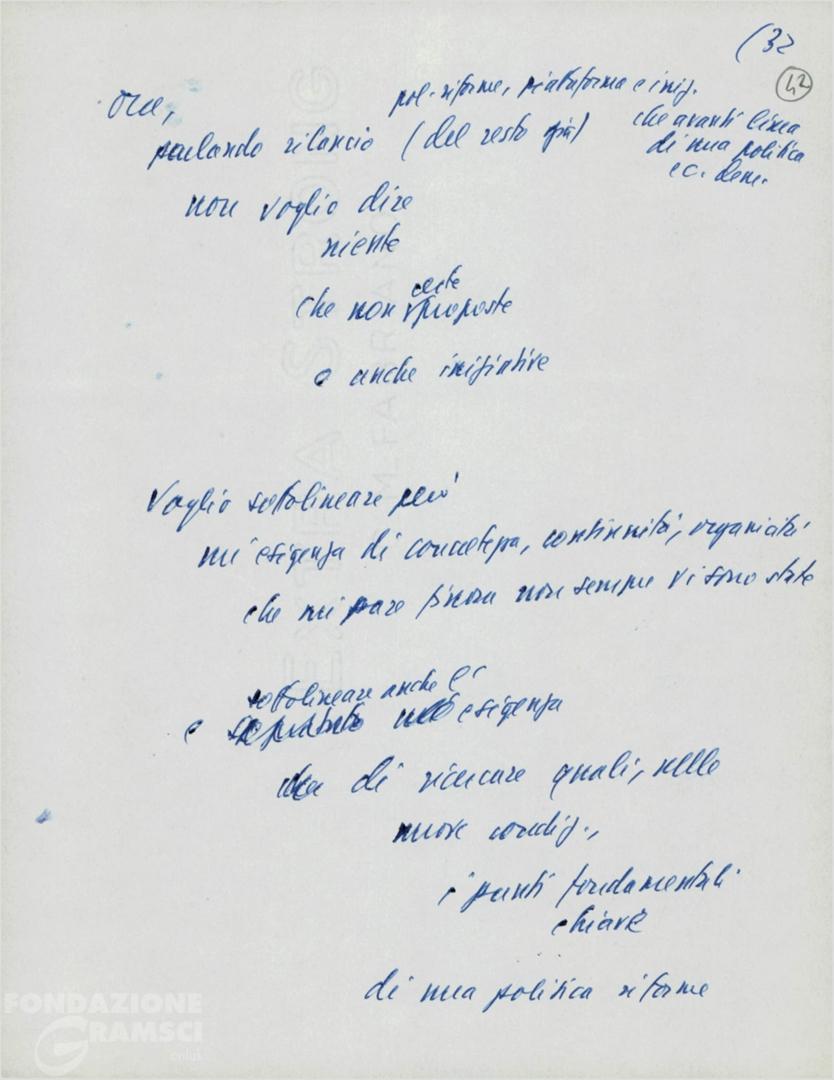 (32
42
Ora,
pol. riforme, piattaforma e iniz.
parlando rilancio (del resto già)
che avanti linea
di una politica
ec. dem.
non voglio dire
niente
che non certe proposte
o anche iniziative
Voglio sottolineare però
un'esigenza di concretezza, continuità, organicità
che mi pare finora non sempre vi sono state
sottolineare anche l'
e esigenza
di ricercare quali, nelle
nuove condiz.,
i punti fondamentali
chiave
di una politica riforme
EXTRA STRONG
FONDAZIONE
GRAMSCI
onlus